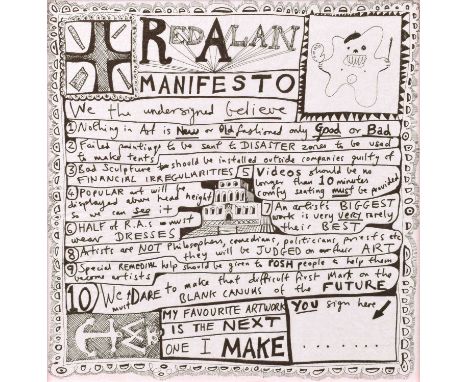 RED ALAN
MANIFESTO
We the undersigned believe
1 Nothing in Art is New or Old fashioned only Good or Bad
2 Failed paintings to be sent to DISASTER zones to be used
to make tents
3 Bad Sculpture should be installed outside companies guilty of
FINANCIAL IRREGULARITIES
4 POPULAR art will be
displayed above head height
so we can see it
5 Videos should be no
longer than 10 minutes
comfy seating must be provided
6 HALF of R.A.s must
wear DRESSES
7 An artist's BIGGEST
work is very very rarely
their BEST
8 Artists are NOT Philosophers, comedians, politicians, priests etc
they will be JUDGED on their ART
9 Special REMEDIAL help should be given to POSH people to help them
become artists
10 We must DARE to make that difficult first mark on the
BLANK CANVAS of the FUTURE
MY FAVOURITE ARTWORK
IS THE NEXT
ONE I MAKE
YOU sign here